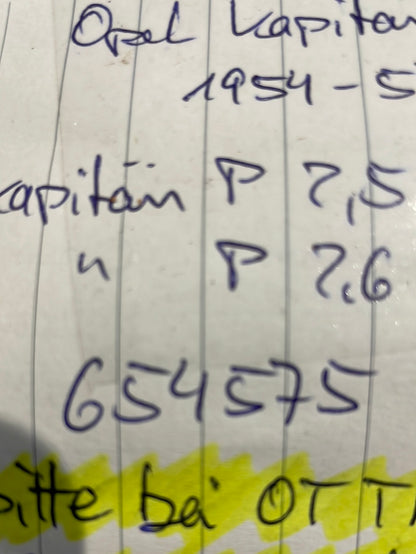 Opel Kapitän
1954 - 5
Kapitän P 2,5
" P 2.6
654575
bitte bei OTT